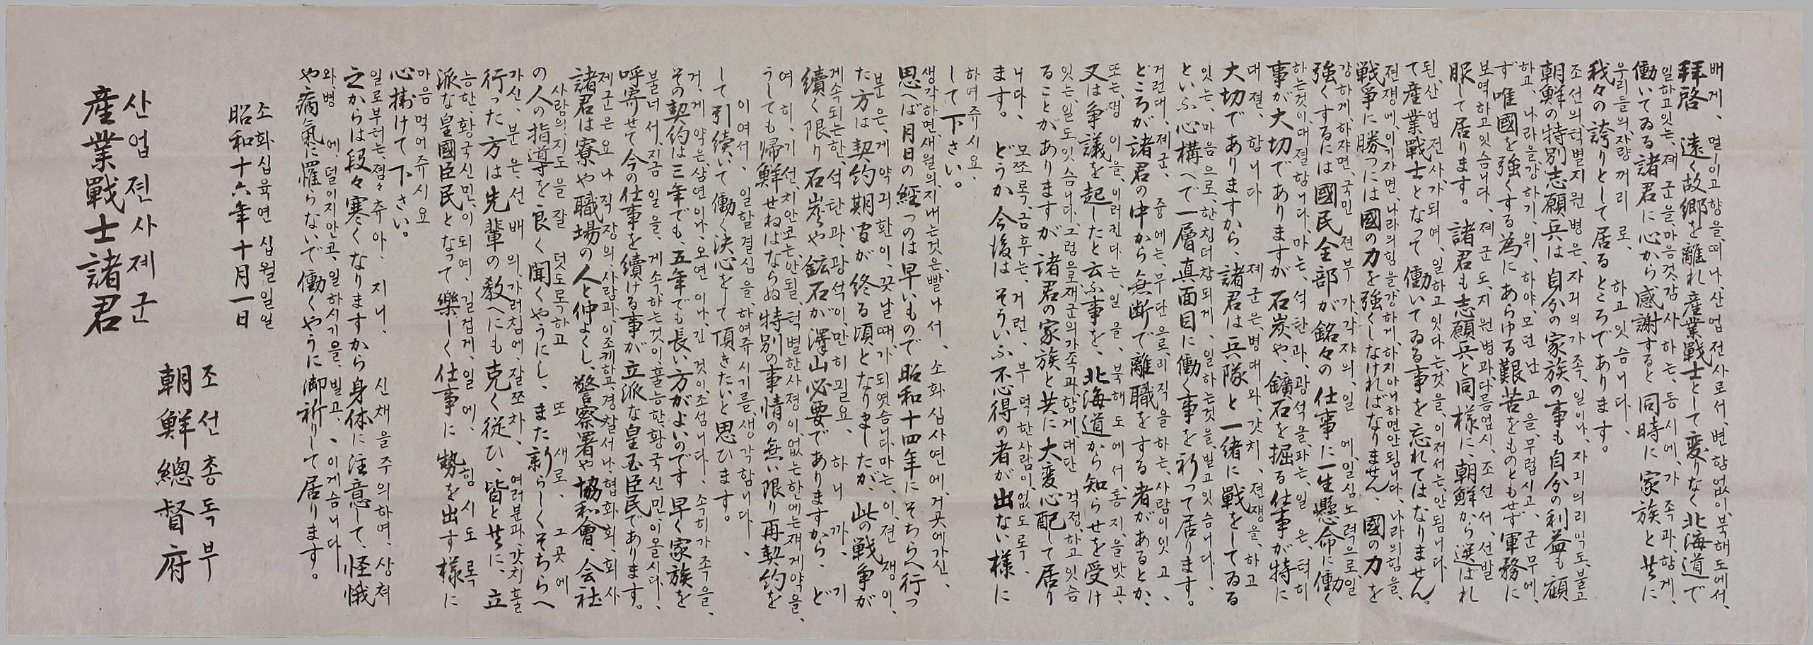 배게、멀니고향을떠나、산업전사로서、변함없이북해도에서、
拜啓 遠く故郷を離れ産業戰士として変りなく北海道で
일하고잇는、제군을마음것감사하는、동시에가족과、함게、
働いてゐる諸君に心から感謝すると同時に家族と共に
우리들의자랑꺼리로、하고잇슴니다、
我々の誇りとして居るところであります。
조선의턱별지원병은、자긔의가족、일이나、자긔의리익도、불고
朝鮮の特別志願兵は自分の家族の事も自分の利益も顧
하고、나라을강하기、위、하야모던난고을무렵시고、군무에、
ず唯國を強くする為にあらゆる艱苦をものともせず軍務に
보여하고잇슴니다、제군도、지원병과다름업시、조선서、선발
服して居ります。諸君も志願兵と同様に、朝鮮から選ばれ
된、산업전사가되여、일하고잇다는것을、이저서는안됨니다
て産業戰士となって働いてゐる事を忘れてはなりません。
전쟁에이기자면、나라의힘을강하게、하지아내하면안됨니다、나라의힘을、
戰爭に勝つには國の力を強くしなければなりません 國の力を
강하게、하자면、국민전부가、각자의、일에、일심노력으로일
強くするには國民全部が銘々の仕事に一生懸命に働く
하는것이、대절함니다、마는、석탄과、광석을、파는、일은、터히
事が大切でありますが石炭や、鑛石を掘る仕事が特に
대절、함니다 제군은、병대와、갓치、전쟁을、하고
大切でありますから、諸君は兵隊と一緒に戰をしてゐる
잇는、마음으로、한칭더착되게、일하는것을、빌고잇슴니다、
といふ心構へで一層真面目に働く事を祈って居ります。
거런대、제군、중에는、무단으로、리직을하는、사람이잇고、
ところが諸君の中から無断で離職をする者があるとか、
또는、쟁이을、이러킨다는、일을、북해도에서、통지、을밧고、
又は争議を起したと云ふ事を、北海道から知らせを受け
잇는、일도잇슴니다、그럼으로、제군의가족과함게대단걱정하고잇슴
ることがありますが諸君の家族と共に大変心配して居り
니다、모쪼록、금후는、거런、부덕한사람이、없도록、
ます。どうか今後はそういふ不心得の者が出ない様に
하여주시오、
して下さい。
생각하면、새월의지내는것은빨나서、소화십사연에、거곳에가신、
思へば月日の經つのは早いもので昭和十四年にそちらへ行つ
분은、게약긔한이、끗날때가되엿슴니다、마는、이전쟁이、
た方は契約期間が終る頃となりましたが、此の戰争が
게속되는한、석탄과、광석이만히필요、하니까、기
續く限り石炭や鉱石が澤山必要でありますから、ど
여히、기선치안코는안될、턱별한사정이없는한에는재게약을、
うしても帰鮮せねばならぬ特別の事情の無い限り再契約を
이여서、일할결심을하여주시기를、생각함니다、
して引續いて働く決心をして頂きたいと思ひます。
거、게약은삼연이나、오연이나、긴것이조섬니다、속히가족을、
その契約は三年でも、五年でも長い方がよいのです早く家族を
불너서、지금일을、게속하는것이、훌능한、황국신민、이올시다、
呼寄せて今の仕事を續ける事が立派な皇国臣民であります。
제군은요나직장의사람과、이조케하고、경찰서나、협화회、회사
諸君は寮や職場の人と仲よくし、警察署や協和會、会社
사람의、지도을잘덧도록하고 또새로、그곳에
の人の指導を良く聞くやうにし、また新らしくそちらへ
가신、분은、선배의、가러침에、잘쪼차、여러분과、갓치훌
行った方は先輩の教へにも克く従ひ、皆と共に、立
능한、황국신민、이되여、길겁게、일에、힘시도록
派な皇國臣民となって樂しく仕事に勢を出す様に
마음먹어주시오
心掛けて下さい。
일로부터는、점々추아、지니、신채을주의하여、상처
之からは段々寒くなりますから身体に注意して、怪俄
와병에、덜이지안코、일하시기을、빌고、이게슴니다
や病氣に罹らないで働くやうに御祈りして居ります。
소화십육연십월일일
昭和十六年十月一日
조선총독부
朝鮮總督府
산업전사제군
産業戰士諸君